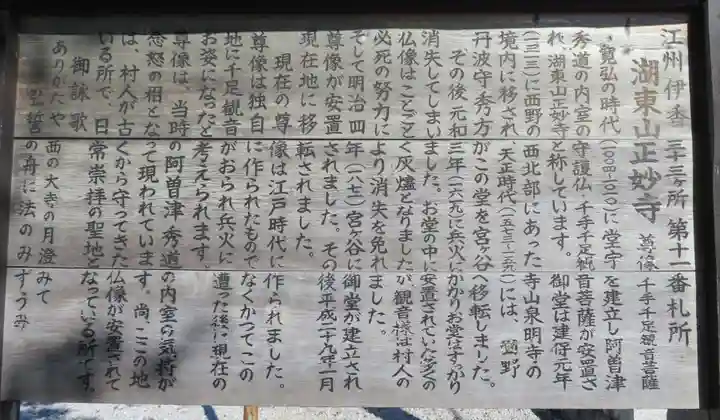 江州伊香三十三ヶ所 第十一番札所
湖東山正妙寺 尊像 千手千足観音菩薩
寛弘の時代(1008-1010)に堂宇を建立し阿曽津
秀道の内室の守護仏、千手千足観音菩薩が安置さ
れ、湖東山正妙寺と称しています。御堂は建保元年
(一二一三)に西野の西北部にあった寺山泉明寺の
境内に移され天正時代(一五七三-一五九一)には、西野
丹波守秀方がこの堂を宮ヶ谷へ移転しました。
その後元和三年(一六一九)に兵火にかかりお堂はすっかり
消失してしまいました。お堂の中に安置されていた多くの
仏像はことごとく灰燼となりましたが観音様は村人の
必死の努力により消失を免れました。
そして明治四年(一八七一)宮ヶ谷に御堂が建立され
尊像が安置されました。その後平成二十九年一月
現在地に移転されました。
現在の尊像は江戸時代に作られました。
尊像は独自に作られたものでなくかつてこの
地に千足観音がおられ兵火に遭った後に現在の
お姿になったと考えられます。
尊像は、当時の阿曽津秀道の内室の気持が
忿怒の相となって現われています。尚、ここの地
は、村人が古くから守ってきた仏像が安置されて
いる所で、日常崇拝の聖地となっている所です。
御詠歌
ありがたや 西の大寺の月澄みて
誓の舟に法のみずうみ